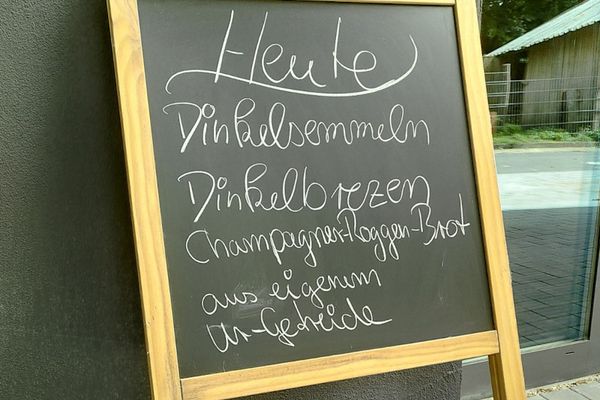 Heute
Dinkelsemmeln
Dinkelbrezen
Champagner-Roggen-Brot
aus eigenem
Ur-Getreide